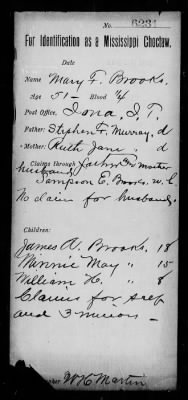 No. 6231
For Identification as a Mississippi Choctaw.
Date
Name Mary F. Brooks.
Age 51 - Blood 1/4
Post Office, Iona, I.T.
Father: Stephen F. Murray, d
Mother: Ruth Jane, d
Claims through father & mother
husband,
Sampson E. Brooks. w.
No claim for husband.
Children:
James A. Brooks. 18
Minnie May " 15
William H. " 8
Claims for self
and 3 minors -
W.H. Martin